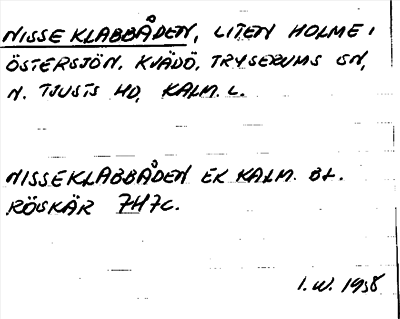 NISSE KLABBÅDEN, LITEN HOLME I
ÖSTERSJÖN. KVÄDÖ, TRYSERUMS SN,
N. TJUSTS HD, KALM. L.
NISSEKLABBÅDEN EK KALM. BL.
RÖSKÄR 7H7c.
I.W. 1958